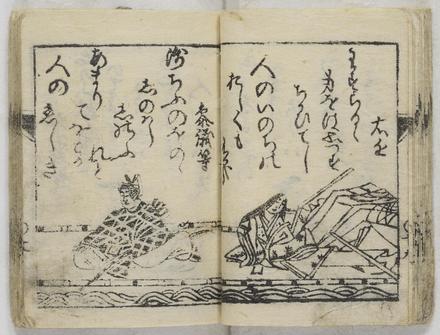 右近
わすらるゝ
身をはおもはす
ちかひてし
人のいのちの
おしくも
あるかな
参議等
浅ちふのをのゝ
しのはら
しのふ
れと
あまり
てなとか
人の恋しき